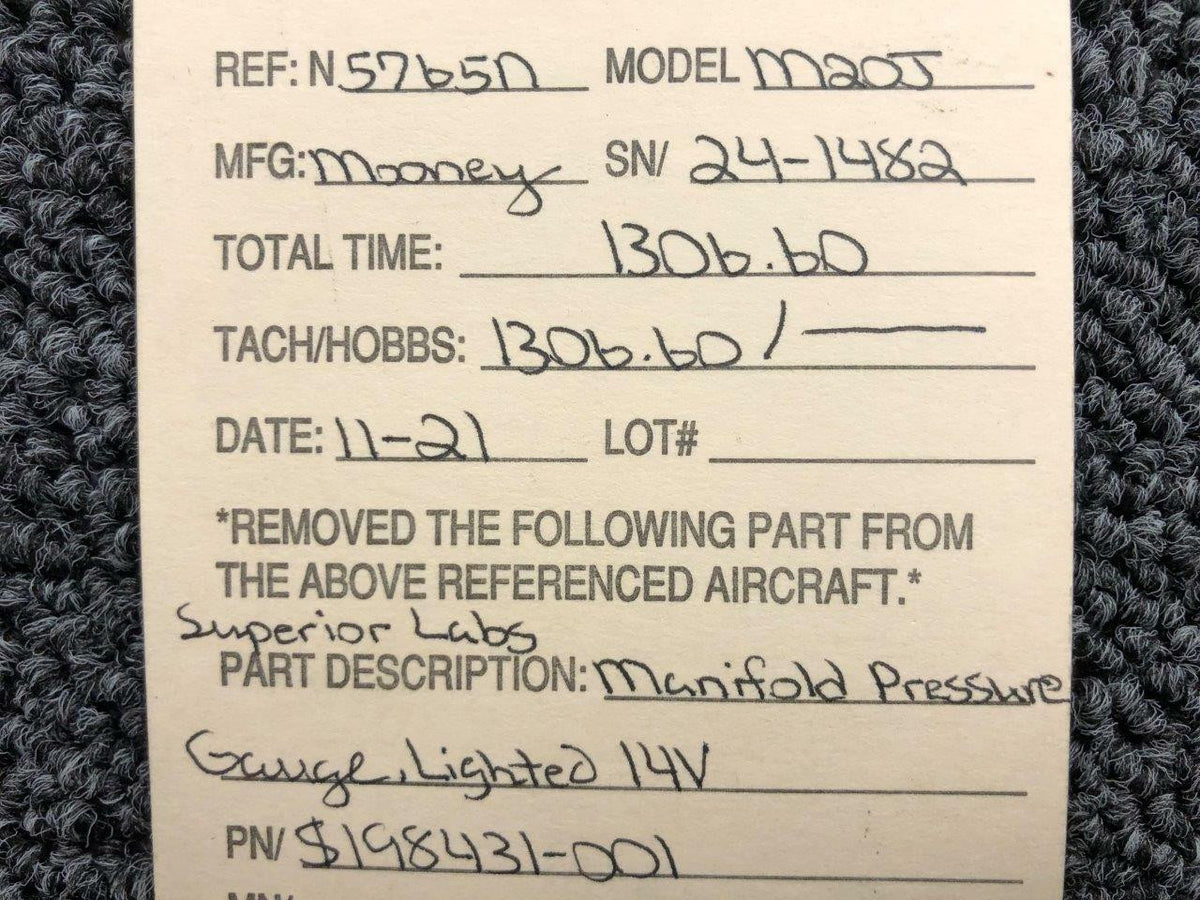 REF: N 5765N MODEL M20J
MFG: Mooney SN/ 24-1482
TOTAL TIME: 1306.60
TACH/HOBBS: 1306.60 / —
DATE: 11-21 LOT#
*REMOVED THE FOLLOWING PART FROM
THE ABOVE REFERENCED AIRCRAFT.*
Superior Labs
PART DESCRIPTION: Manifold Pressure
Gauge, Lighted 14V
PN/ $198431-001